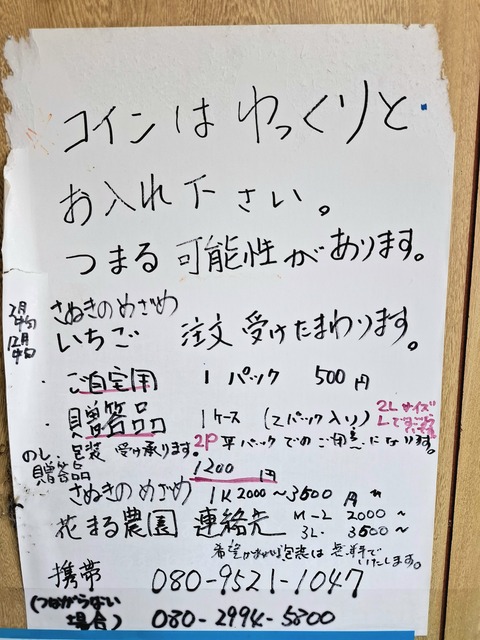 コインはゆっくりと
お入れ下さい。
つまる可能性があります。
さぬきのめざめ
いちご 注文 受けたまわります。
・ご自宅用 1パック 500円
・贈答品 1ケース (2パック入り) 2Lサイズ
のし、包装 受け承ります。 2P 平パックでのご用意になります。
贈答品 1200円
さぬきのめざめ 1K2000~3500円
花まる農園 連絡先 M-L 2000~
3L. 3500~
携帯 080-9521-1047
(つながらない
場合) 080-2994-5800